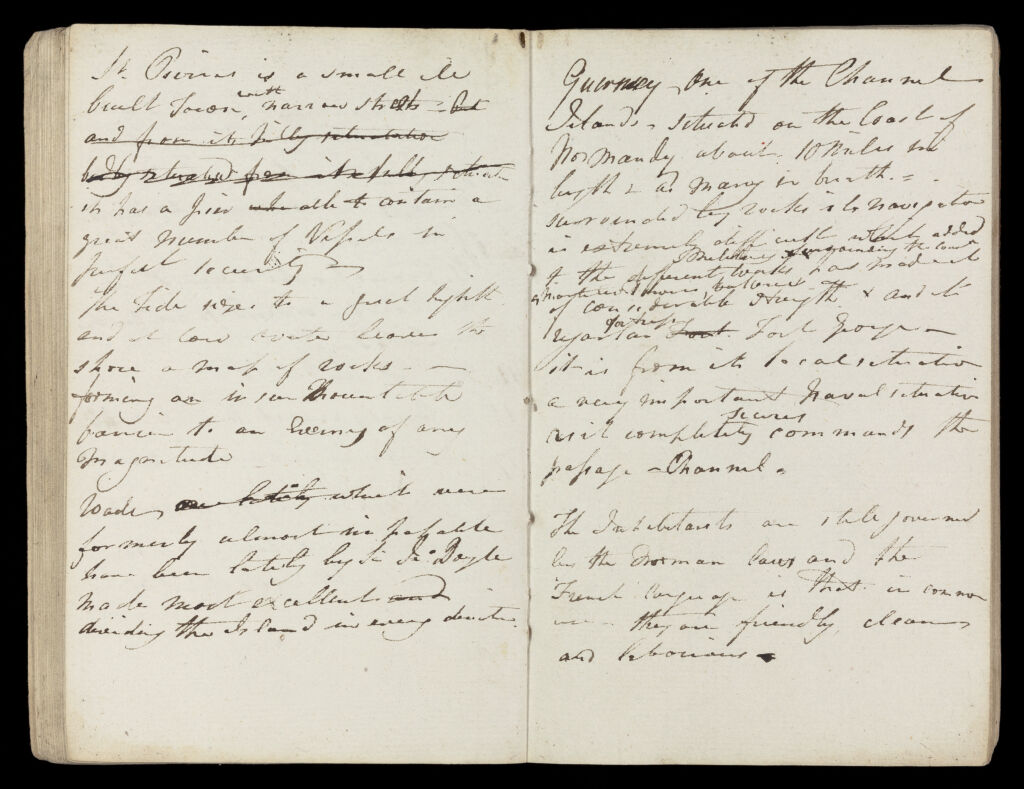 St. Pierres is a small ile
built Town, with narrow streets - but
and from its hilly situation
badly situated from its hilly situat
it has a Pier able to contain a
great number of Vessels in
perfect security
The tide rises to a great hight
and at low water leaves the
shore a mass of rocks - -
forming an insurmountable
barrier to an Enemy of any
magnitude
Roads are lately which were
formerly almost impassable
have been lately by Sir Jn. Doyle
made most excellent and
dividing the Island in every direction.
Guernsey - one of the Channel
Islands - situated on the Coast of
Normandy about 10 Miles in
length & as many in breath. =
surrounded by rocks its navigation
is extremely difficult which added
to the different works surrounding the coast has made it
of considerable strength. x and its
regular fortress Fort Fort George -
it is from its local situation
a very important Naval situation
as it completely secures commands the
passage - Channel -
The Inhabitants are still governed
by the Norman Laws and the
French language is that in common
use - they are friendly, clean
and laborious -